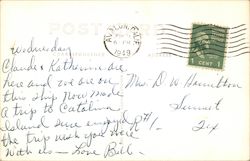 POST CARD
AVALON, CALIF.
1949
1 CENT 1
Wednesday
Claude & Katherine are
here and we are on
this ship now made
a trip to Catalina
Island sure enjoyed
the trip wish you were
with us - Love Bill -
Mrs. D. W. Hamilton
Sunset
Tex